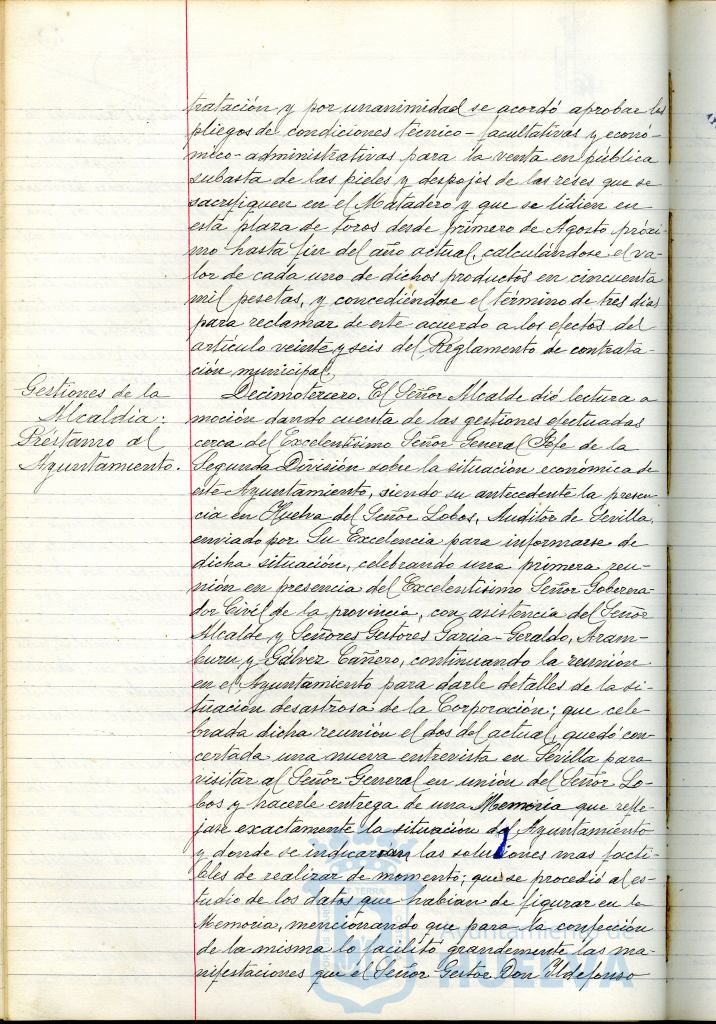 tratación y por unanimidad se acordó aprobar los
pliegos de condiciones técnico-facultativas y econó-
mico-administrativas para la venta en pública
subasta de las pieles y despojos de las reses que se
sacrifiquen en el Matadero y que se lidien en
esta plaza de toros desde primero de Agosto próxi-
mo hasta fin del año actual, calculándose el va-
lor de cada uno de dichos productos en cincuenta
mil pesetas, y concediéndose el término de tres días
para reclamar de este acuerdo a los efectos del
artículo veinte y seis del Reglamento de contrata-
ción municipal.
Gestiones de la
Alcaldía:
Préstamo al
Ayuntamiento.
Decimotercero. El Señor Alcalde dió lectura a
moción dando cuenta de las gestiones efectuadas
cerca del Excelentísimo Señor General Jefe de la
Segunda División sobre la situación económica de
este Ayuntamiento, siendo su antecedente la presen-
cia en Huelva del Señor Lobos, Auditor de Sevilla,
enviado por Su Excelencia para informarse de
dicha situación, celebrando una primera reu-
nión en presencia del Excelentísimo Señor Goberna-
dor Civil de la provincia, con asistencia del Señor
Alcalde y Señores Gestores García-Geraldo, Aram-
buru y Gálvez Cañero, continuando la reunión
en el Ayuntamiento para darle detalles de la si-
tuación desastrosa de la Corporación; que cele-
brada dicha reunión el dos del actual, quedó con-
certada una nueva entrevista en Sevilla para
visitar al Señor General en unión del Señor Lo-
bos y hacerle entrega de una Memoria que refle-
jase exactamente la situación del Ayuntamiento
y donde se indicarían las soluciones mas facti-
bles de realizar de momento; que se procedió al es-
tudio de los datos que habían de figurar en la
Memoria, mencionando que para la confección
de la misma lo facilitó grandemente las ma-
nifestaciones que el Señor Gestor Don Ildefonso
Ayuntamiento de
HUELVA